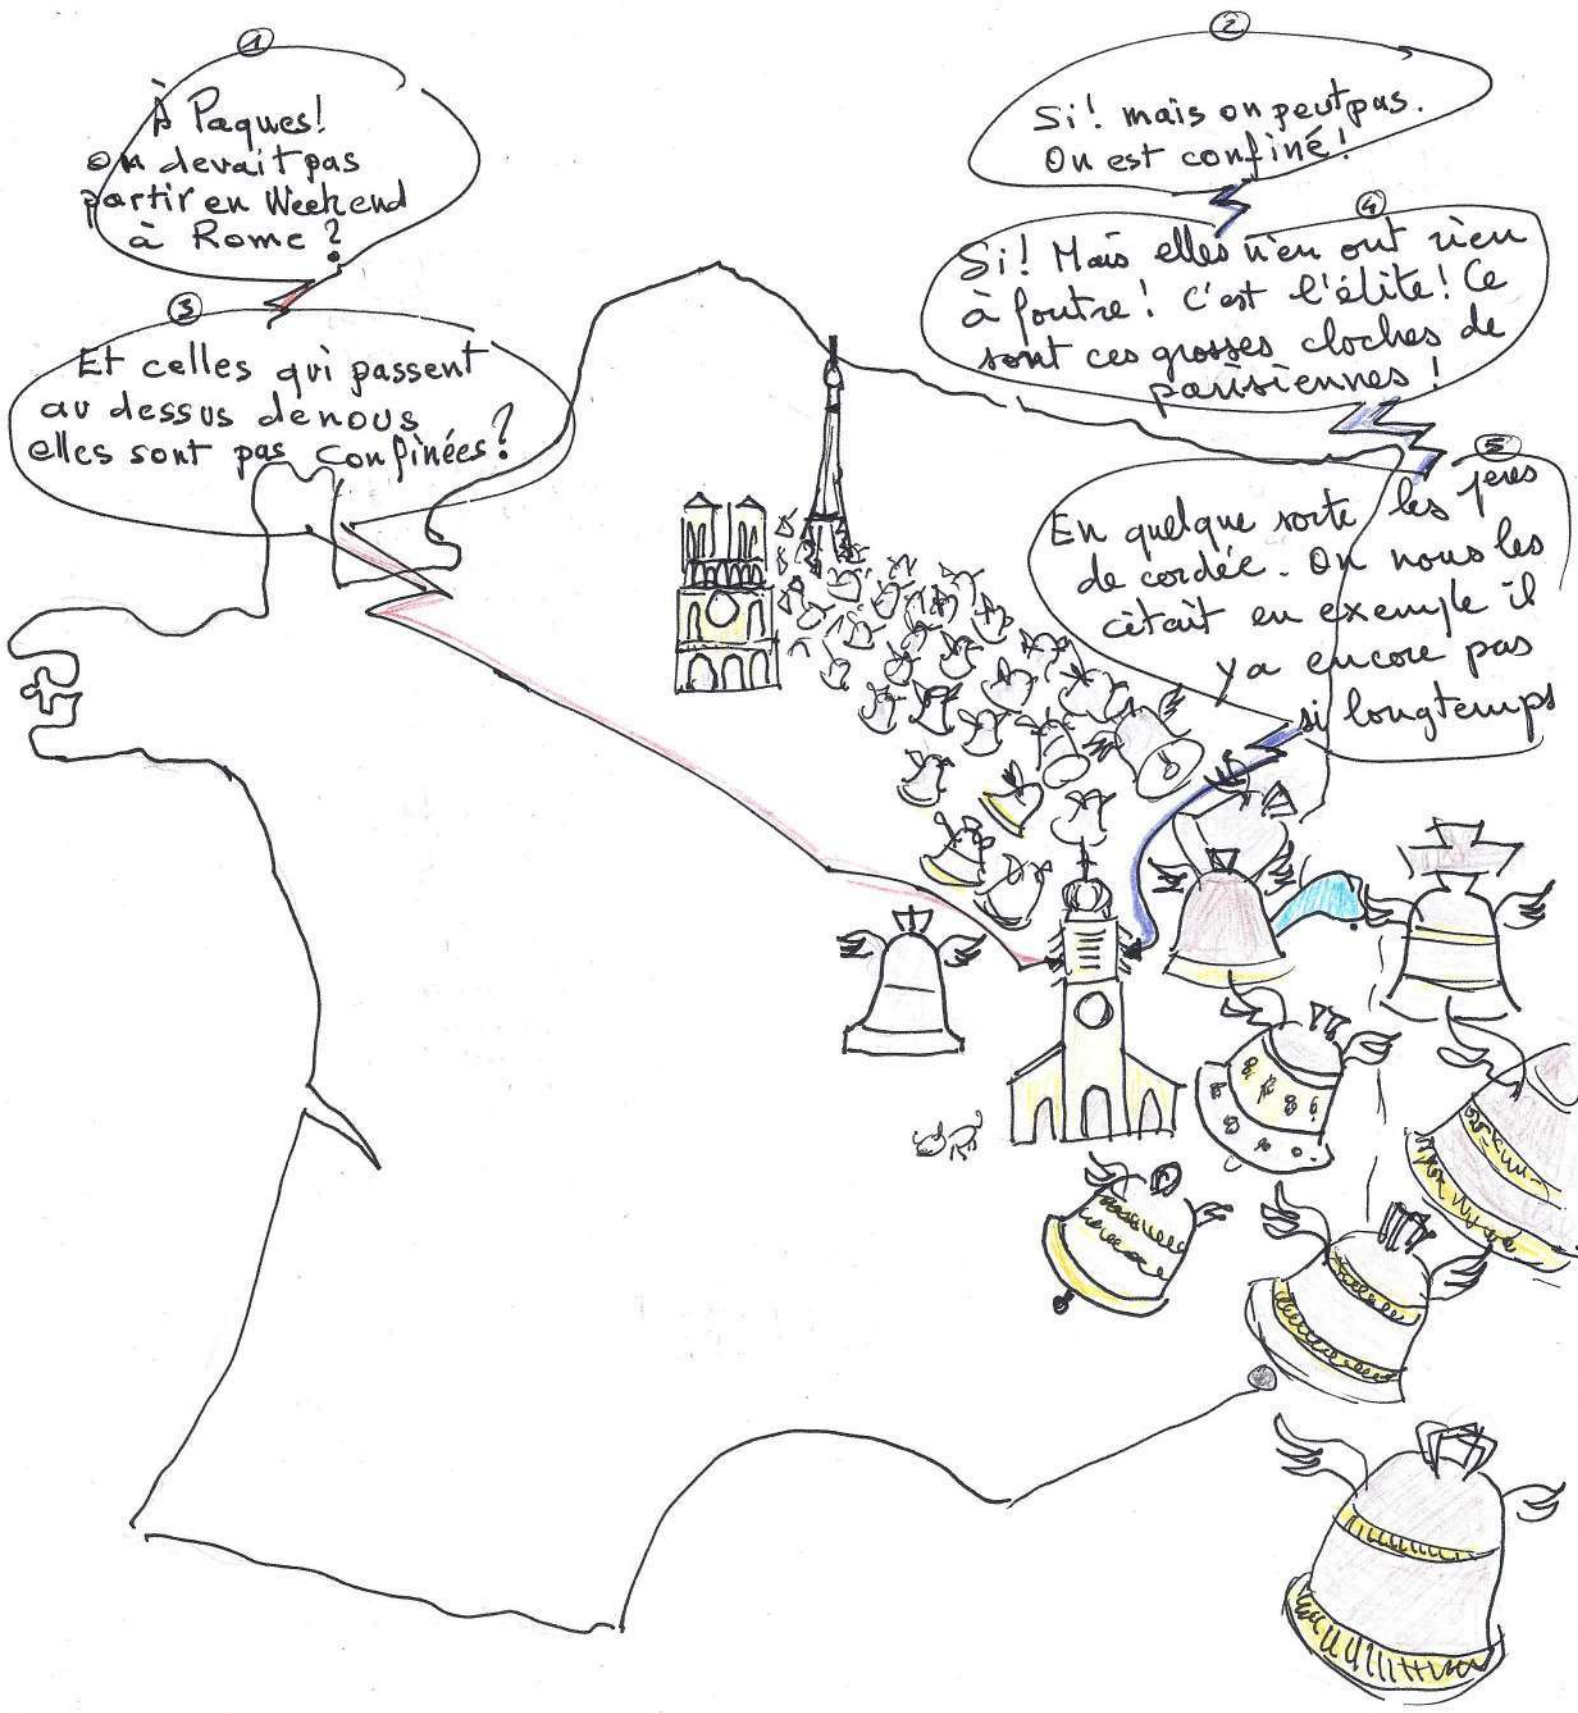 1
À Paques!
on devait pas
partir en Weekend
à Rome?
2
Si! mais on peut pas.
On est confiné!
3
Et celles qui passent
au dessus de nous
elles sont pas confinées?
4
Si! Mais elles n'en ont rien
à foutre! C'est l'élite! Ce
sont ces grosses cloches de
parisiennes!
5
En quelque sorte les 1ères
de cordée. On nous les
citait en exemple il
y a encore pas
si longtemps